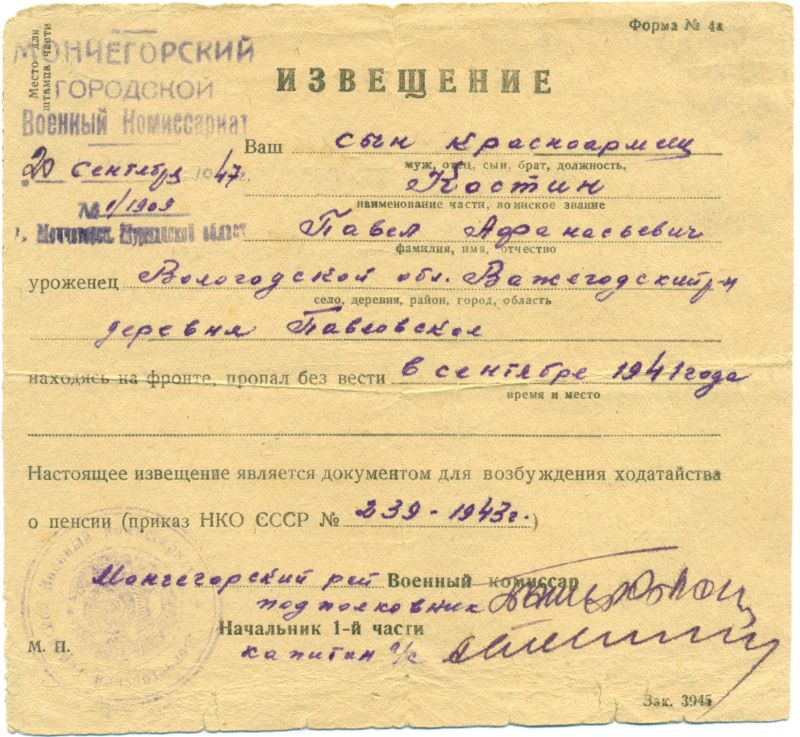 Форма № 4а
Место для
штампа части
МОНЧЕГОРСКИЙ
ГОРОДСКОЙ
Военный Комиссариат
20 сентября 1947 г.
№ 1/1909
г. Мончегорск, Мурманской област
ИЗВЕЩЕНИЕ
Ваш сын красноармеец
муж, отец, сын, брат, должность,
Костин
наименование части, воинское звание
Павел Афанасьевич
фамилия, имя, отчество
уроженец Вологодской обл. Важегодский р-н
село, деревня, район, город, область
деревня Павловская
находясь на фронте, пропал без вести в сентябре 1941 года
время и место
Настоящее извещение является документом для возбуждения ходатайства
о пенсии (приказ НКО СССР № 239-1943г.)
Мончегорский рай Военный комиссар
подполковник
Начальник 1-й части
капитан а/с
М. П.
Зак. 3945